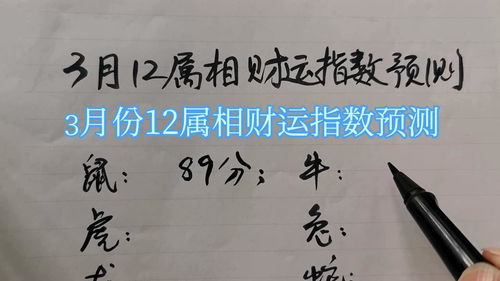 3月12属相财运指数预测
3月份12属相财运指数预测
鼠：89分；牛：
虎：兔：